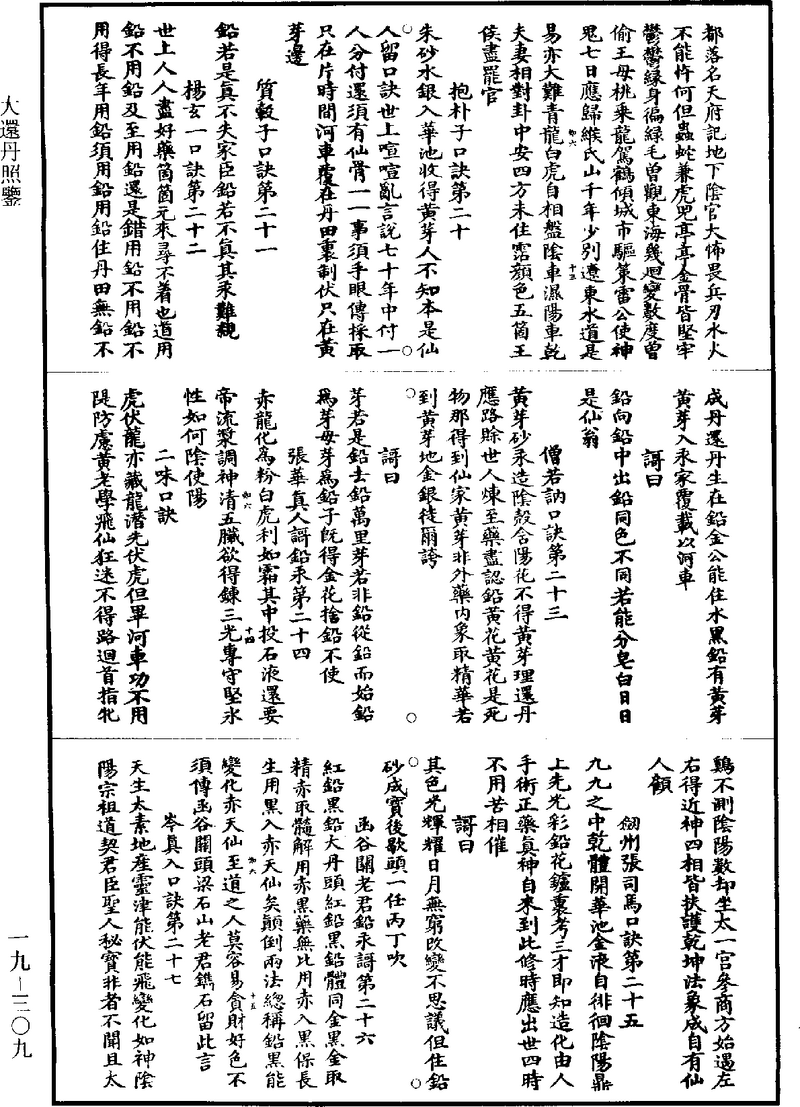 都落名天府記地下陰官大怖畏兵刃水火
不能忤何但蟲蛇兼虎兕亭亭金骨皆堅牢
鬱鬱緑身徧緑毛曽觀東海幾迴變數度曽
偷王母桃乗龍駕鶴傾城市驅策雷公使神
鬼七日應歸緱氏山千年少別遼東水道是
易亦大難青龍白虎自相盤陰車濕陽車乾
夫妻相對卦中安四方未住霑顔色五箇王
侯盡罷官
抱朴子口訣第二十
朱砂水銀入華池收得黄芽人不知本是仙
人留口訣世上喧喧亂言說七十年中付一
人分付還須有仙骨一一事須手眼傳採取
只在片時間河車覆在丹田裏制伏只在黄
芽邊
質轂子口訣第二十一
鉛若是真不失家臣鉛若不真其汞難親
楊玄一口訣第二十二
世上人人盡好藥箇箇元來尋不着也道用
鉛不用鉛及至用鉛還是錯用鉛不用鉛不
用得長年用鉛須用鉛用鉛住丹田無鉛不
成丹還丹生在鉛金公能住水黒鉛有黄芽
黄芽入汞家覆載以河車
謌曰
鉛向鉛中出鉛同色不同若能分皂白日日
是仙翁
僧若訥口訣第二十三
黄芽砂汞造陰殻合陽花不得黄芽理還丹
應路賒世人煉至藥盡認鉛黄花黄花是死
物那得到仙家黄芽非外藥内象取精華若
到黄芽地金銀徒爾誇
謌曰
芽若是鉛去鉛萬里芽若非鉛從鉛而始鉛
爲芽母芽爲鉛子旣得金花捨鉛不使
張華真人謌鉛汞第二十四
赤龍化爲粉白虎利如霜其中投石液還要
帝流漿調神清五臟欲得鍊三光專守堅氷
性如何陰使陽
二味口訣
虎伏龍亦藏龍潜先伏虎但畢河車功不用
隄防慮黄老學飛仙狂迷不得路迴首指牝
鷄不測陰陽數却坐太一宫參商方始遇左
右得近神四相皆扶護乾坤法象成自有仙
人顧
劒州張司馬口訣第二十五
九九之中乾體開華池金液自徘徊陰陽鼎
上先光彩鉛花鑪裏考三才即知造化由人
手術正藥真神自来到此修時應出世四時
不用苦相催
謌曰
其色光輝耀日月無窮改變不思議但住鉛
砂成寳後歇頭一任丙丁吹
函谷關老君鉛汞謌第二十六
紅鉛黒鉛大丹頭紅鉛黒鉛體同金黒金取
精赤取髓解用赤黒藥無比用赤入黒保長
生用黒入赤天仙矣顛倒兩法總稱鉛黒能
變化赤天仙至道之人莫容易貪財好色不
須傳函谷關頭梁石山老君鐫石留此言
岑真人口訣第二十七
天生太素地産靈津能伏能飛變化如神陰
陽宗祖道契君臣聖人秘寳非者不開且太
大還丹照鑒
一九－三〇九